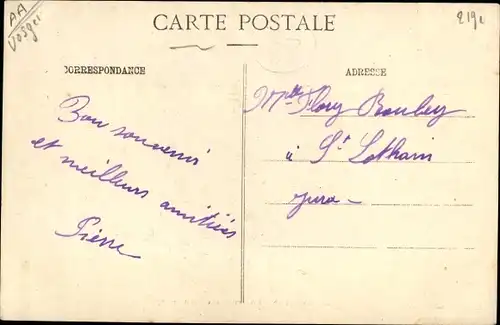 AA
Vosges
CARTE POSTALE
219c
CORRESPONDANCE
ADRESSE
Bon souvenir
et meilleurs amitiés
Pierre
Mlle Flory Bouley
à St Lothain
Jura